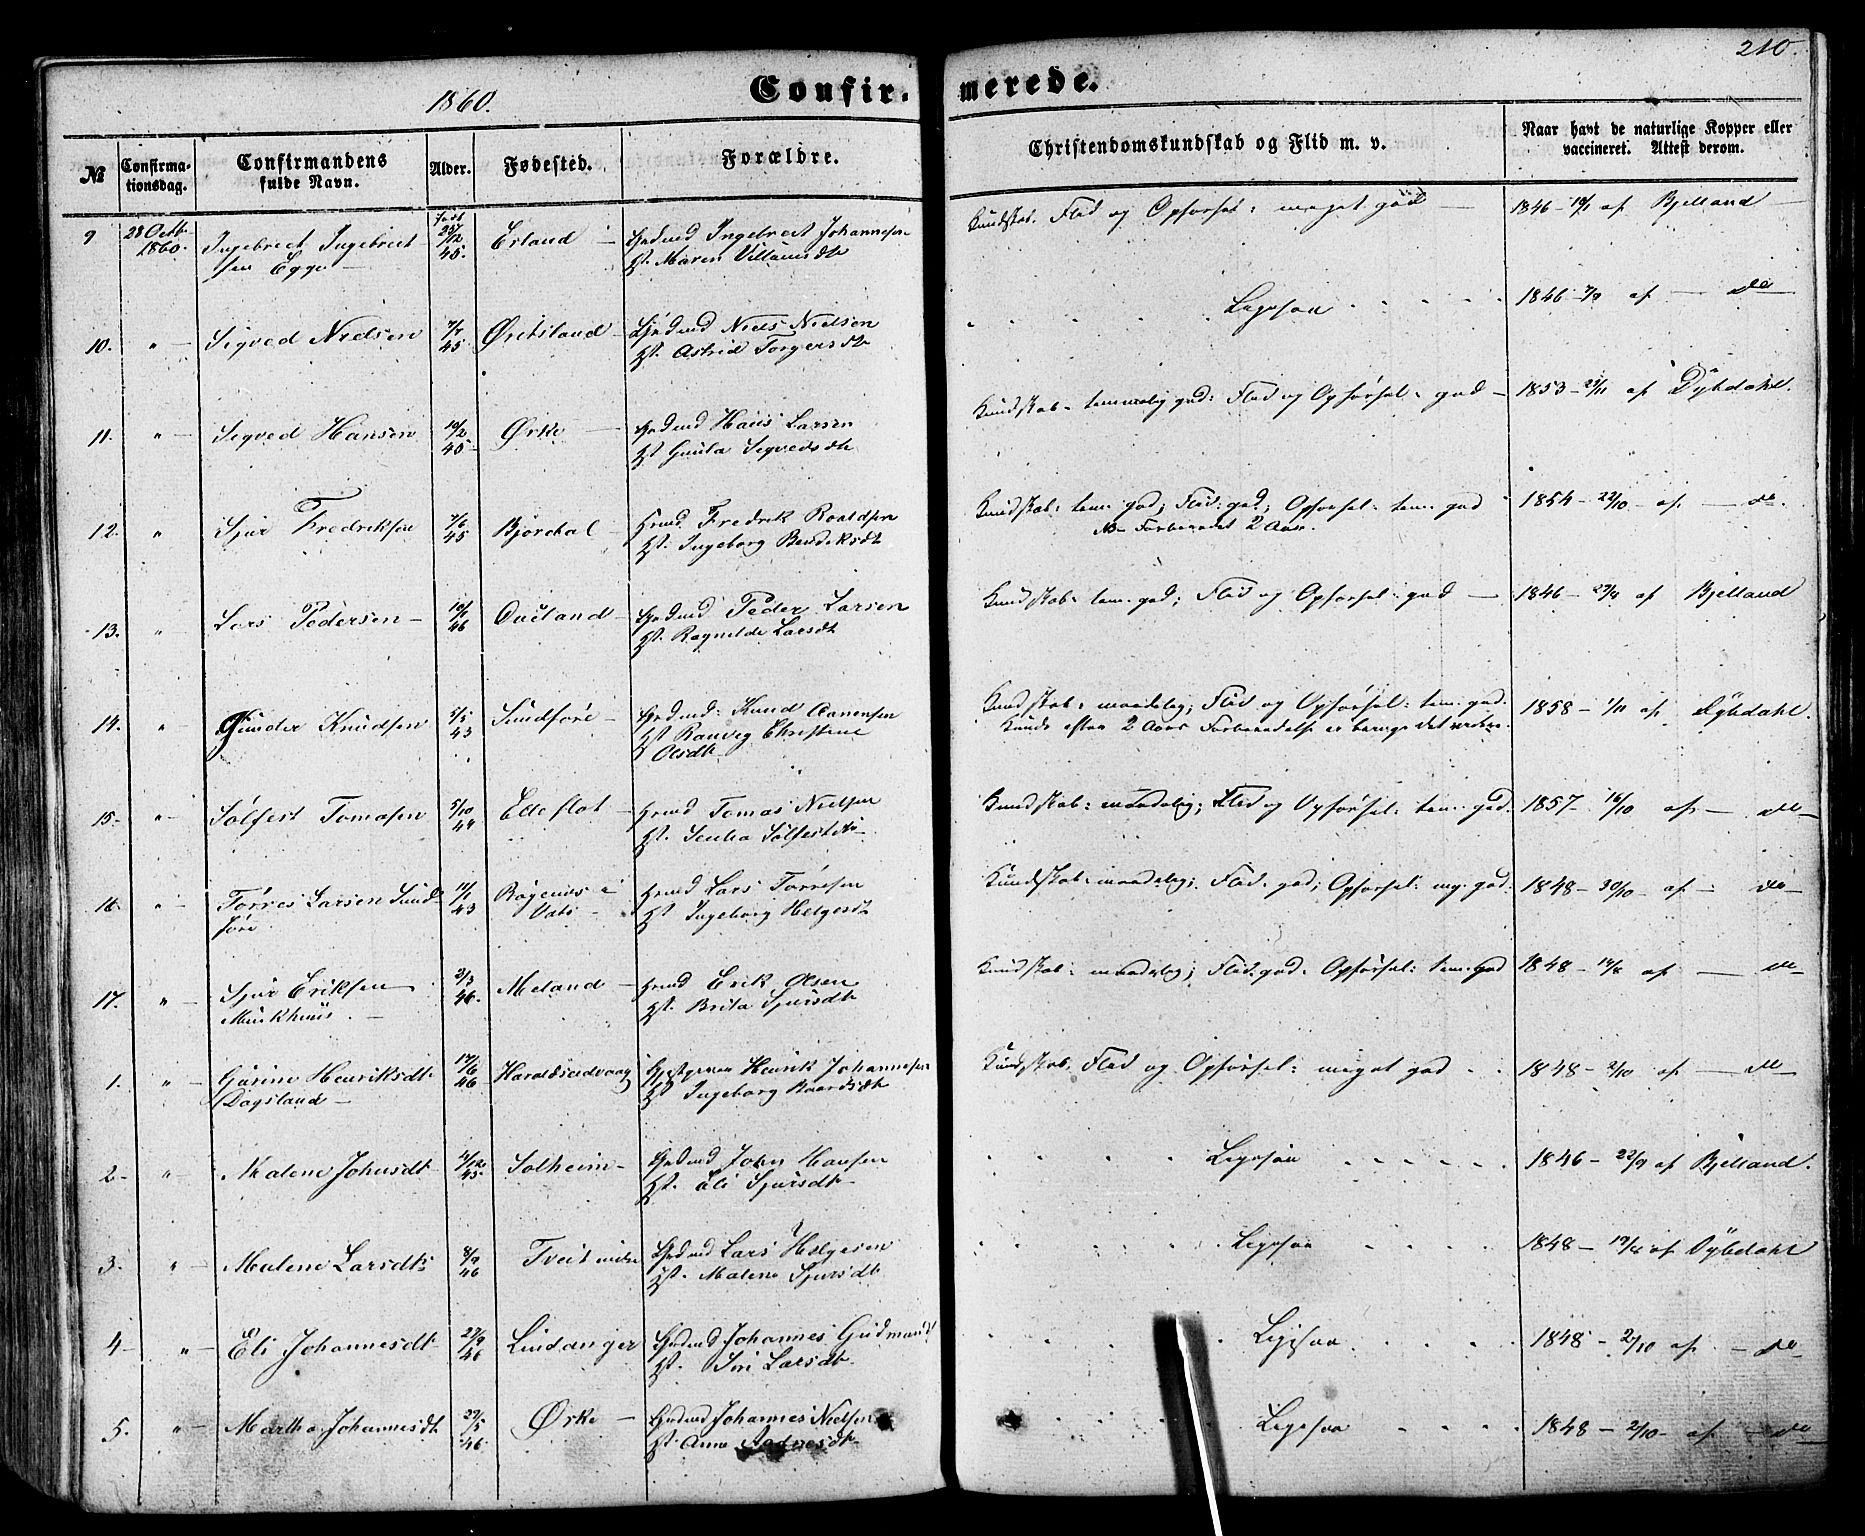 210.
1860.
Confir- merede.
№
Confirma-
tionsdag.
Confirmandens
fulde Navn.
Alder.
Fødested.
Forældre.
Christendomskundskab og Flid m. v.
Naar havt de naturlige Kopper eller
vaccineret. Attest derom.
9 28 Octb. 1860. Ingebrect Ingebrect-
sen Egge
født 25/12 45. Erland Grdmd Ingebrect Johannesen
Hst. Maren Villumsdt
Kundskab, Flid og Opførsel: meget god 1846 19/1 af Bjelland
10. " Sigved Nielsen 7/7 45 Østsland Grdmd Niels Nielsen
Hst. Astrid Torgersdt
Ligesaa 1846 7/9 af do
11. " Sigved Hansen 10/2 45 Ørke Grdmd Hans Larsen
Hst Gunla Sigvedsdt
Kundskab: temmelig god: Flid og Opførsel: god 1853 - 27/11 af Dybdahl.
12. " Sjur Fredriksen 7/6 45 Bjordal Hmd. Fredrik Roaldsen
Hst. Ingeborg Bendiksdt
Kundskab: tem. god; Flid: god; Opførsel: tem. god
NB Forberedet 2 Aar.
1854 - 22/10 - af - do.
13. " Lars Pedersen 10/1 46 Oueland Grdmd Peder Larsen
Hst. Ragnilde Larsdt
Kundskab: tem. god; Flid og Opførsel: god 1846 - 29/9 af Bjelland
14. " Gunder Knudsen 5/5 43 Sundføre Grdmd: Knud Aanensen
Hst Ranveg Christine
Olsdt
Kundskab: maadelig; Flid og Opførsel: tem. god.
Kunde efter 2 Aars Forberedelse ei bringe det videre.
1858 - 1/11 af Dybdahl.
15. " Sølfest Tomasen 5/10 44 Elleflot Hmd Tomas Nielsen
Hst. Senba Sølfestdt
Kundskab: maadelig; Flid og Opførsel: tem. god. 1857 - 16/10 af - do
16. " Tørres Larsen Sund-
føre
11/1 43 Røgenes i
Vats
Hmd Lars Tørresen
Hst Ingeborg Helgesdt
Kundskab: maadelig; Flid: god; Opførsel: mg. god. 1848 - 30/10 af - do
17. " Sjur Eriksen
Munkhuus
2/3 46. Meland Hmd Erik Olsen
Hst. Brita Sjursdt
Kundskab: maadelig; Flid: god. Opførsel: tem. god 1848 - 17/8 af - do
1. " Gurine Henriksdt
Dagsland
17/6 46 Haraldseidvaag Gjestgiver Henrik Johannesen
Hst Ingeborg Baardsdt
Kundskab, Flid og Opførsel: meget god 1848 - 2/10 af - do
2. " Malene Johnsdt 11/12 45. Solheim Grdmd John Hansen
Hst. Eli Sjursdt
Ligesaa 1846 - 22/9 af Bjelland.
3. " Malene Larsdt 8/9 46 Tveit indre Grdmd Lars Helgesen
Hst. Malene Sjursdt
Ligesaa 1848 - 17/8 af Dybdahl
4 " Eli Johannesdt 27/9 46 Lindanger Grdmd Johannes Gudmunds
Hst. Siri Larsdt
Ligesaa 1848 - 2/10 af - do
5. " Martha Johannesdt 27/5 46 Ørke Grdmd Johannes Nielsen
Hst. Anna
Ligesaa 1848 - 2/10 - af - do